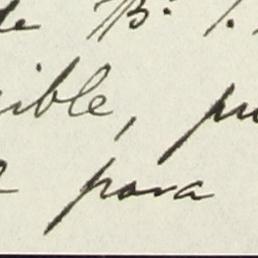 de B. 
ible, pu
para